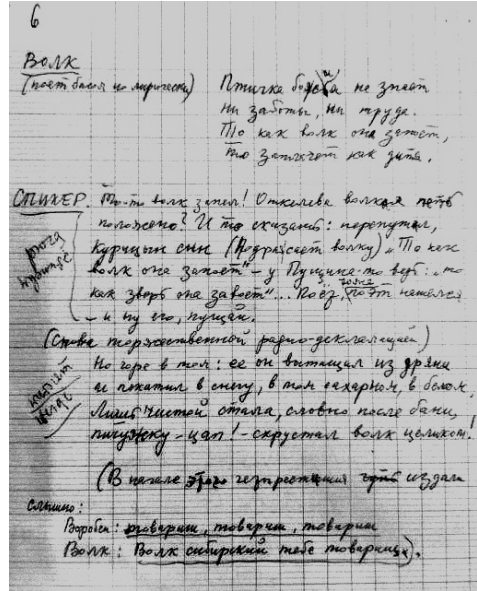 6
Волк
(поет басом но лирически)
Птичка божия не знает
ни заботы, ни труда.
То как волк она запоет,
то заплачет как дитя.
СПИКЕР. То-то волк запел! Откелева волкам петь
положено? И то сказать: перепутал,
курицын сын (Подражает волку) „То как
волк она запоет" – у Пушкина-то ведь: „то
как зверь она завоет"... Поёт, тоже поэт нашелся
– и ну его, пущай.
(Снова торжественной радио-декламацией)
Но горе в том: ее он вытащил из дряни
и покатил в снегу, в том сахарном, в белом,
Лишь чистой стала, словно после бани,
пичужку – цап! – схрустал волк целиком!
(В начале этого четверостишия издали
слышно:
Воробей: товарищ, товарищ, товарищ
Волк: Волк сибирский тебе товарищ).